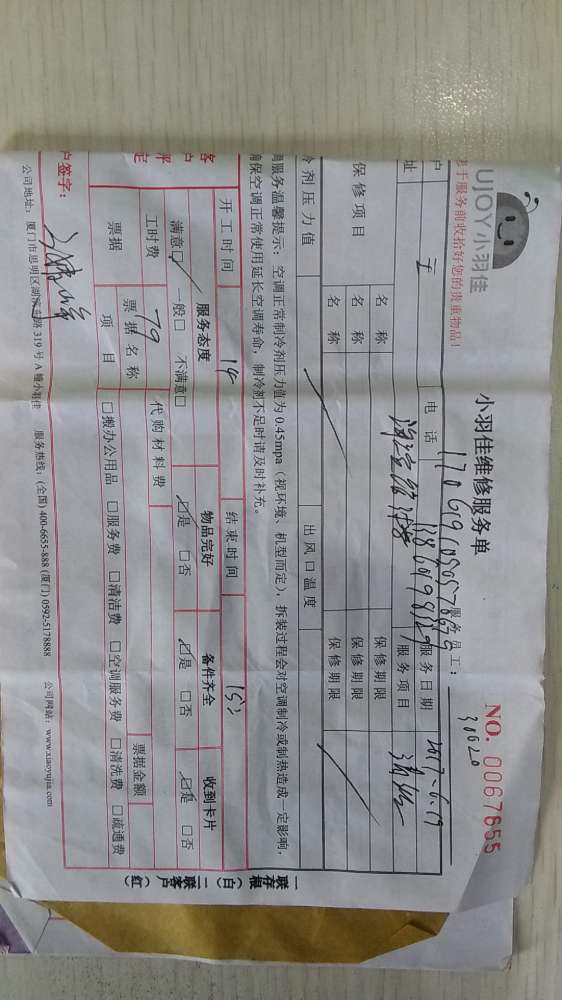 UJOY小羽佳
小羽佳维修服务单
NO. 0067855
手服务前收拾好您的贵重物品!
服务员工: 30620
户 王 电话 服务日期 2017.6.19
址 服务项目 清洗
保修项目 名称 保修期限
名称 保修期限
名称 保修期限
冷剂压力值 出风口温度
调服务温馨提示:空调正常制冷剂压力值为0.45mpa(视环境、机型而定),拆装过程会对空调制冷或制热造成一定影响,
确保空调正常使用延长空调寿命,制冷剂不足时请及时补充。
开工时间 14 结束时间
客户评定 服务态度 物品完好 备件齐全 收到卡片
满意☑ 一般□ 不满意□ ☑是 □否 ☑是 □否 ☑是 □否
工时费 79 代购材料费
票据 票据名称 票据金额
项目 □搬办公用品 □服务费 □清洁费 □空调服务费 □清洗费 □疏通费
户签字:
公司地址:厦门市思明区湖滨南路319号A幢小羽佳 服务热线:(全国) 400-6655-888 (厦门) 0592-5178888 公司网站:www.xiaoyujia.com
一联存根(白) 二联客户(红)